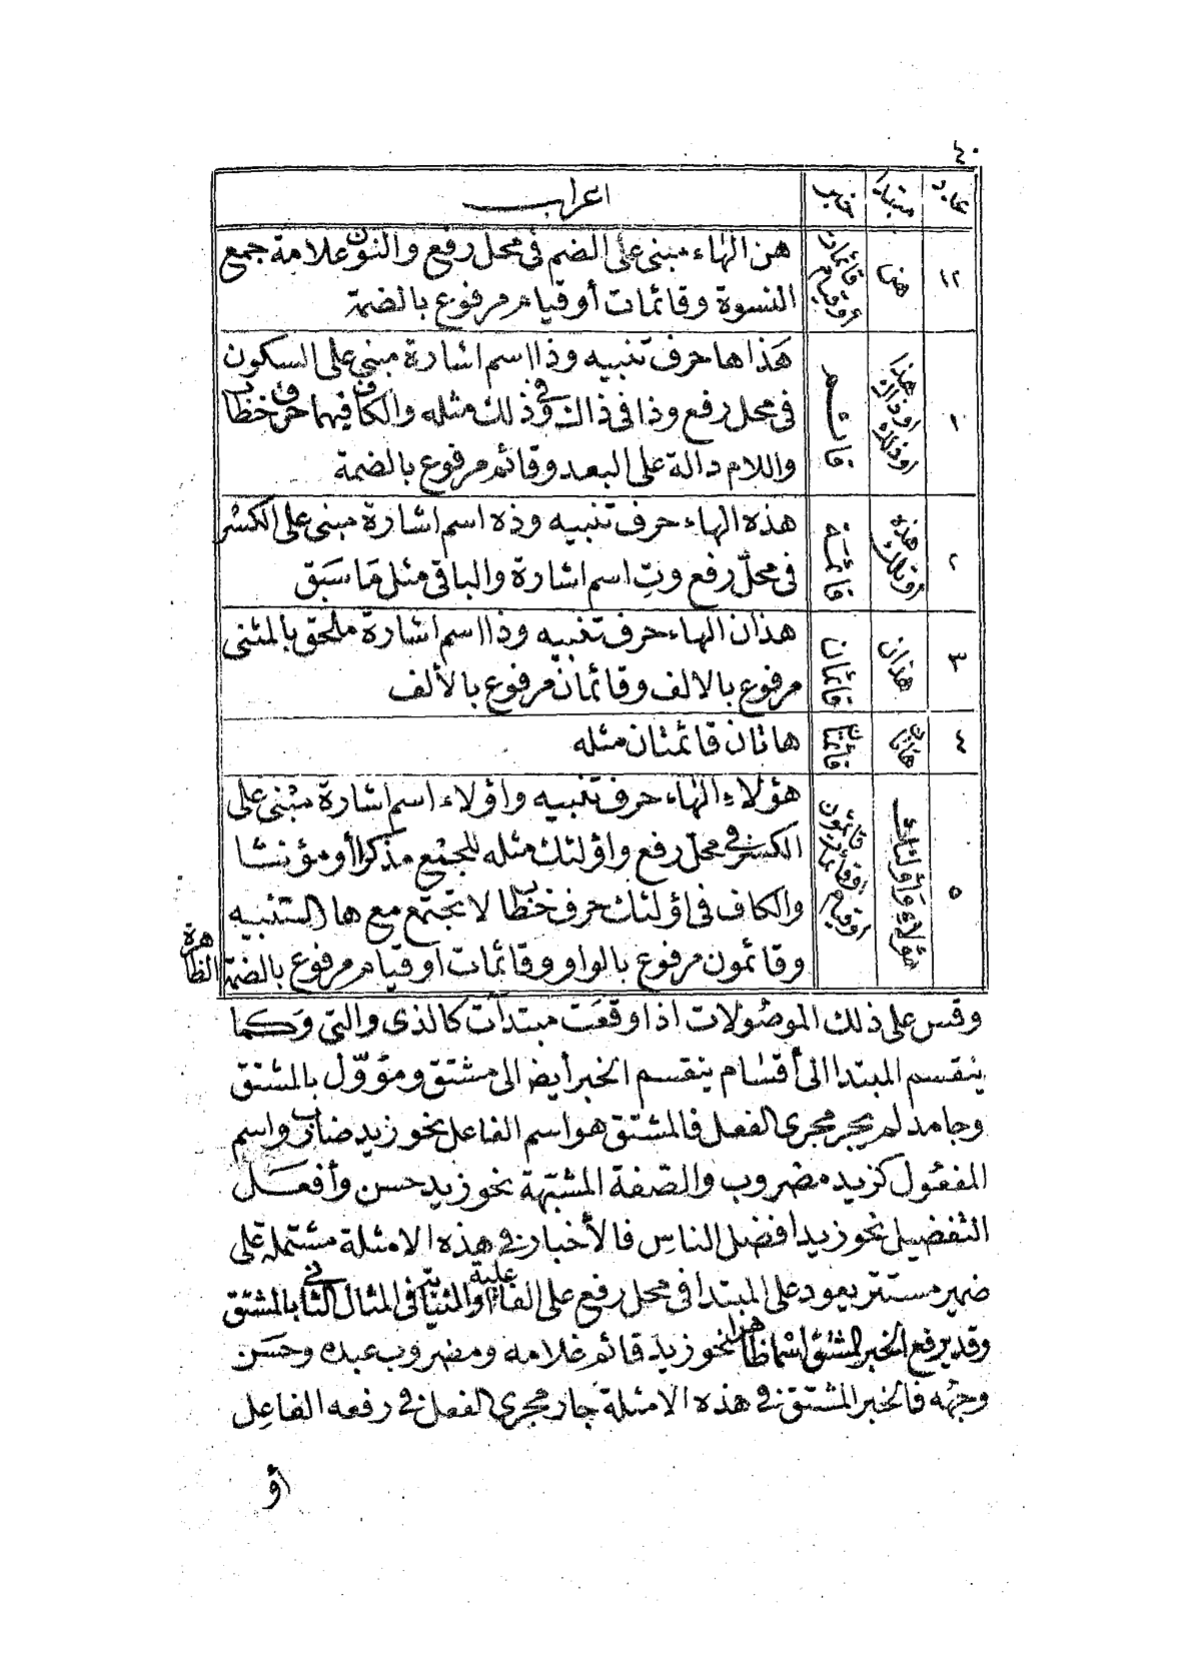 ٤٠
عدد مبتدأ خبر اعراب
١٢ هن قائمات أو قيام هن الهاء مبنى على الضم فى محل رفع والنون علامة جمع
النسوة وقائمات أو قيام مرفوع بالضمة
١ هذا او ذاك او ذلك قائم هَذا ها حرف تنبيه وذا اسم اشارة مبنى على السكون
فى محل رفع وذا فى ذاك وفى ذلك مثله والكاف فيهما حرف خطاب
واللام دالة على البعد وقائم مرفوع بالضمة
٢ هذه أو تلك قائمة هذه الهاء حرف تنبيه وذه اسم اشارة مبنى على الكسر
فى محلّ رفع وتِ اسم اشارة والباقى مثل مَا سَبَق
٣ هذان قائمان هذان الهاء حرف تنبيه وذا اسم اشارة ملحق بالمثنى
مرفوع بالالف وقائمان مرفوع بالألف
٤ هاتان قائمتان هاتان قائمتان مثله
٥ هؤلاء وأولئك قائمون اوقائمات اوقيام هؤلاء الهاء حرف تنبيه واؤلاء اسم اشارة مبنى على
الكسر فى محل رفع واؤلئك مثله للجمع مذكرا أو مؤنثا
والكاف فى اؤلئك حرف خطاب لا يجتمع مع ها التنبيه
وقائمون مرفوع بالواو وقائمات او قيام مرفوع بالضمة الظاهرة
وقس على ذلك الموصُولات اذا وقعَت مبتدآت كالذى والتى وَكما
ينقسم المبتدا الى أقسَام ينقسم الخبر أيضا الى مشتق ومؤوّل بالمشتق
وجامد لم يجر مجرى الفعل فالمشتق هو اسم الفاعل نحو زيد ضارب واسم
المفعُول كزيد مضروب والصّفة المشبّهة نحو زيد حسن وأفعَل
التفضيل نحو زيد افضل الناس فالأخبار فى هذه الامثلة مشتملة على
ضمير مستتر يعود على المبتدا فى محل رفع على الفاعلية او النيابية فى المثال الثانى بالمشتق
وقد يرفع الخبر المشتق اسما ظاهرا نحو زيد قائم غلامه ومضروب عبده وحَسَن
وجهُه فالخبر المشتق فى هذه الامثلة جار مجرى الفعل فى رفعه الفاعِل
أو